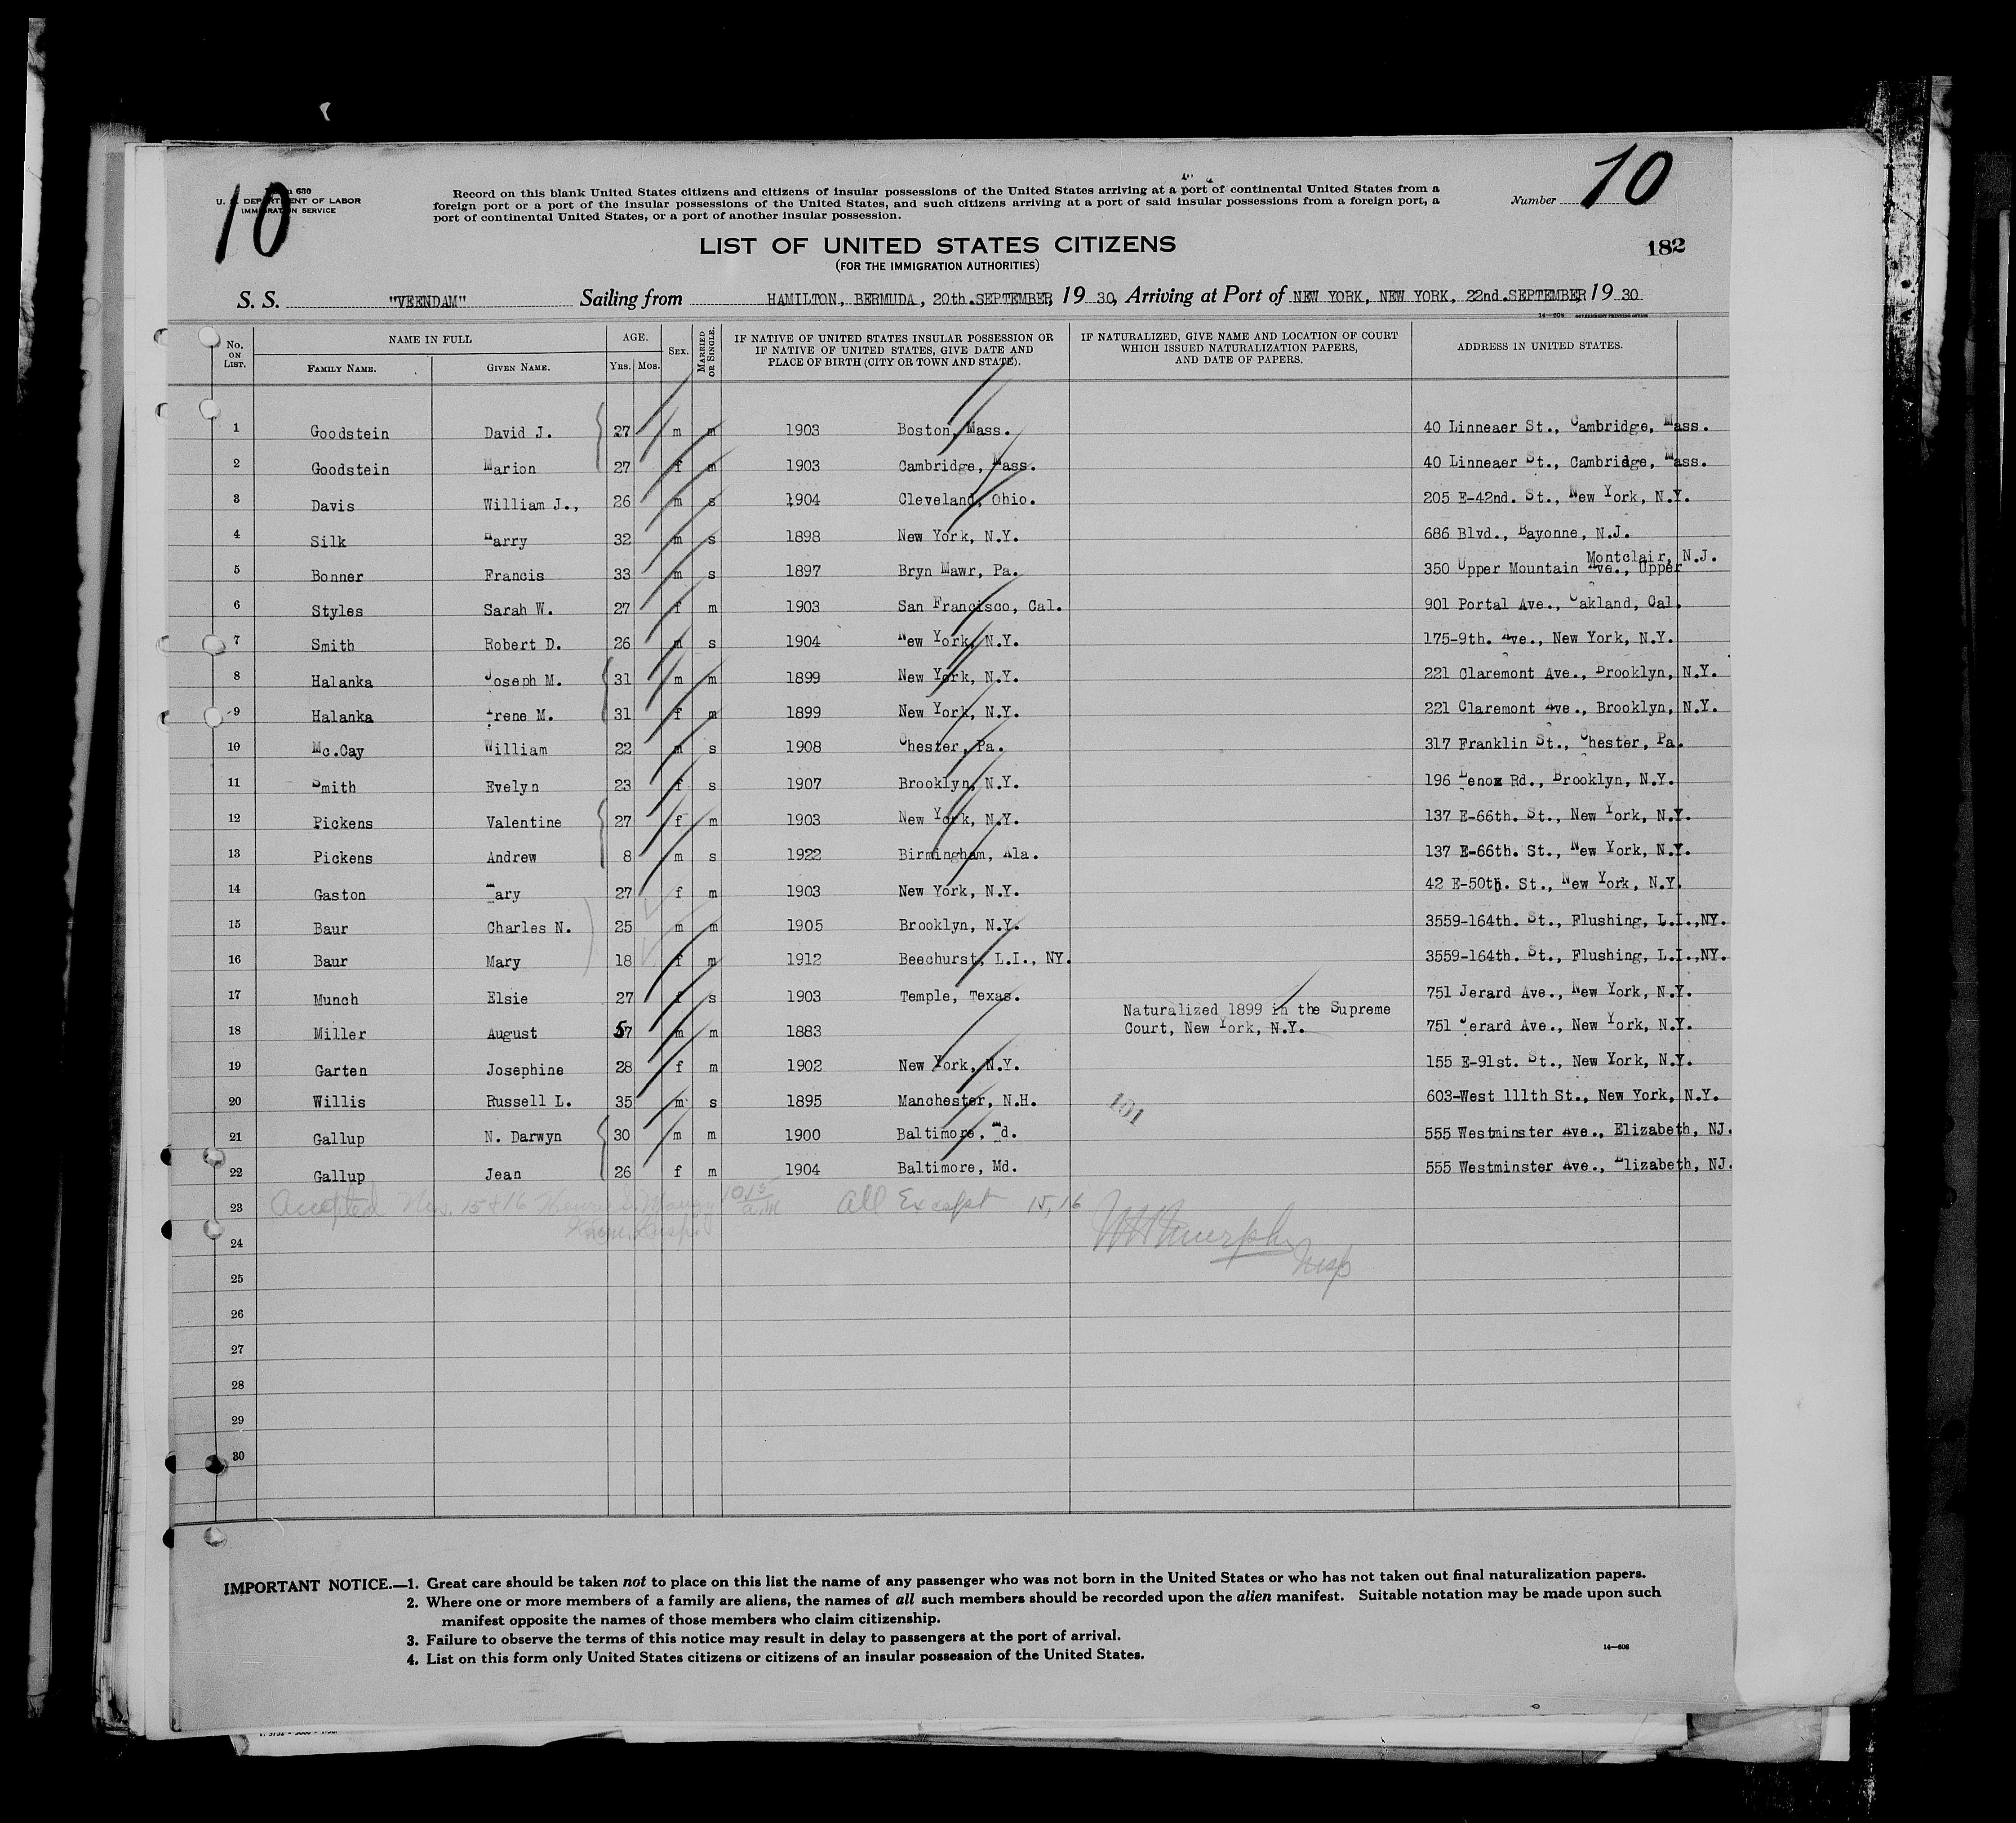 10
Form 630
U. S. DEPARTMENT OF LABOR
IMMIGRATION SERVICE
Record on this blank United States citizens and citizens of insular possessions of the United States arriving at a port of continental United States from a
foreign port or a port of the insular possessions of the United States, and such citizens arriving at a port of said insular possessions from a foreign port, a
port of continental United States, or a port of another insular possession.
Number 10
LIST OF UNITED STATES CITIZENS
(FOR THE IMMIGRATION AUTHORITIES)
182
S. S. "VEENDAM" Sailing from HAMILTON, BERMUDA, 20th.SEPTEMBER, 19 30, Arriving at Port of NEW YORK, NEW YORK, 22nd.SEPTEMBER, 19 30
14—608 GOVERNMENT PRINTING OFFICE
No. ON LIST. NAME IN FULL FAMILY NAME. GIVEN NAME. AGE. YRS. MOS. SEX. MARRIED OR SINGLE. IF NATIVE OF UNITED STATES INSULAR POSSESSION OR IF NATIVE OF UNITED STATES, GIVE DATE AND PLACE OF BIRTH (CITY OR TOWN AND STATE). IF NATURALIZED, GIVE NAME AND LOCATION OF COURT WHICH ISSUED NATURALIZATION PAPERS, AND DATE OF PAPERS. ADDRESS IN UNITED STATES.
1 Goodstein David J. 27 m m 1903 Boston, Mass. 40 Linneaer St., Cambridge, Mass.
2 Goodstein Marion 27 f m 1903 Cambridge, Mass. 40 Linneaer St., Cambridge, Mass.
3 Davis William J., 26 m s 1904 Cleveland, Ohio. 205 E-42nd. St., New York, N.Y.
4 Silk Harry 32 m s 1898 New York, N.Y. 686 Blvd., Bayonne, N.J.
5 Bonner Francis 33 m s 1897 Bryn Mawr, Pa. 350 Upper Mountain Ave., Upper Montclair, N.J.
6 Styles Sarah W. 27 f m 1903 San Francisco, Cal. 901 Portal Ave., Oakland, Cal.
7 Smith Robert D. 26 m s 1904 New York, N.Y. 175-9th. Ave., New York, N.Y.
8 Halanka Joseph M. 31 m m 1899 New York, N.Y. 221 Claremont Ave., Brooklyn, N.Y.
9 Halanka Irene M. 31 f m 1899 New York, N.Y. 221 Claremont Ave., Brooklyn, N.Y.
10 Mc.Cay William 22 m s 1908 Chester, Pa. 317 Franklin St., Chester, Pa.
11 Smith Evelyn 23 f s 1907 Brooklyn, N.Y. 196 Lenox Rd., Brooklyn, N.Y.
12 Pickens Valentine 27 f m 1903 New York, N.Y. 137 E-66th. St., New York, N.Y.
13 Pickens Andrew 8 m s 1922 Birmingham, Ala. 137 E-66th. St., New York, N.Y.
14 Gaston Mary 27 f m 1903 New York, N.Y. 42 E-50th. St., New York, N.Y.
15 Baur Charles N. 25 m m 1905 Brooklyn, N.Y. 3559-164th. St., Flushing, L.I.,NY.
16 Baur Mary 18 f m 1912 Beechurst, L.I., NY. 3559-164th. St., Flushing, L.I.,NY.
17 Munch Elsie 27 f s 1903 Temple, Texas. 751 Jerard Ave., New York, N.Y.
18 Miller August 57 m m 1883 Naturalized 1899 in the Supreme Court, New York, N.Y. 751 Jerard Ave., New York, N.Y.
19 Garten Josephine 28 f m 1902 New York, N.Y. 155 E-91st. St., New York, N.Y.
20 Willis Russell L. 35 m s 1895 Manchester, N.H. 101 603-West 111th St., New York, N.Y.
21 Gallup N. Darwyn 30 m m 1900 Baltimore, Md. 555 Westminster Ave., Elizabeth, NJ.
22 Gallup Jean 26 f m 1904 Baltimore, Md. 555 Westminster Ave., Elizabeth, NJ.
23 Accepted Nos. 15 & 16 All Except 15, 16
24 Murphy Insp
25
26
27
28
29
30
IMPORTANT NOTICE.—1. Great care should be taken not to place on this list the name of any passenger who was not born in the United States or who has not taken out final naturalization papers.
2. Where one or more members of a family are aliens, the names of all such members should be recorded upon the alien manifest. Suitable notation may be made upon such
manifest opposite the names of those members who claim citizenship.
3. Failure to observe the terms of this notice may result in delay to passengers at the port of arrival.
4. List on this form only United States citizens or citizens of an insular possession of the United States.
14—608